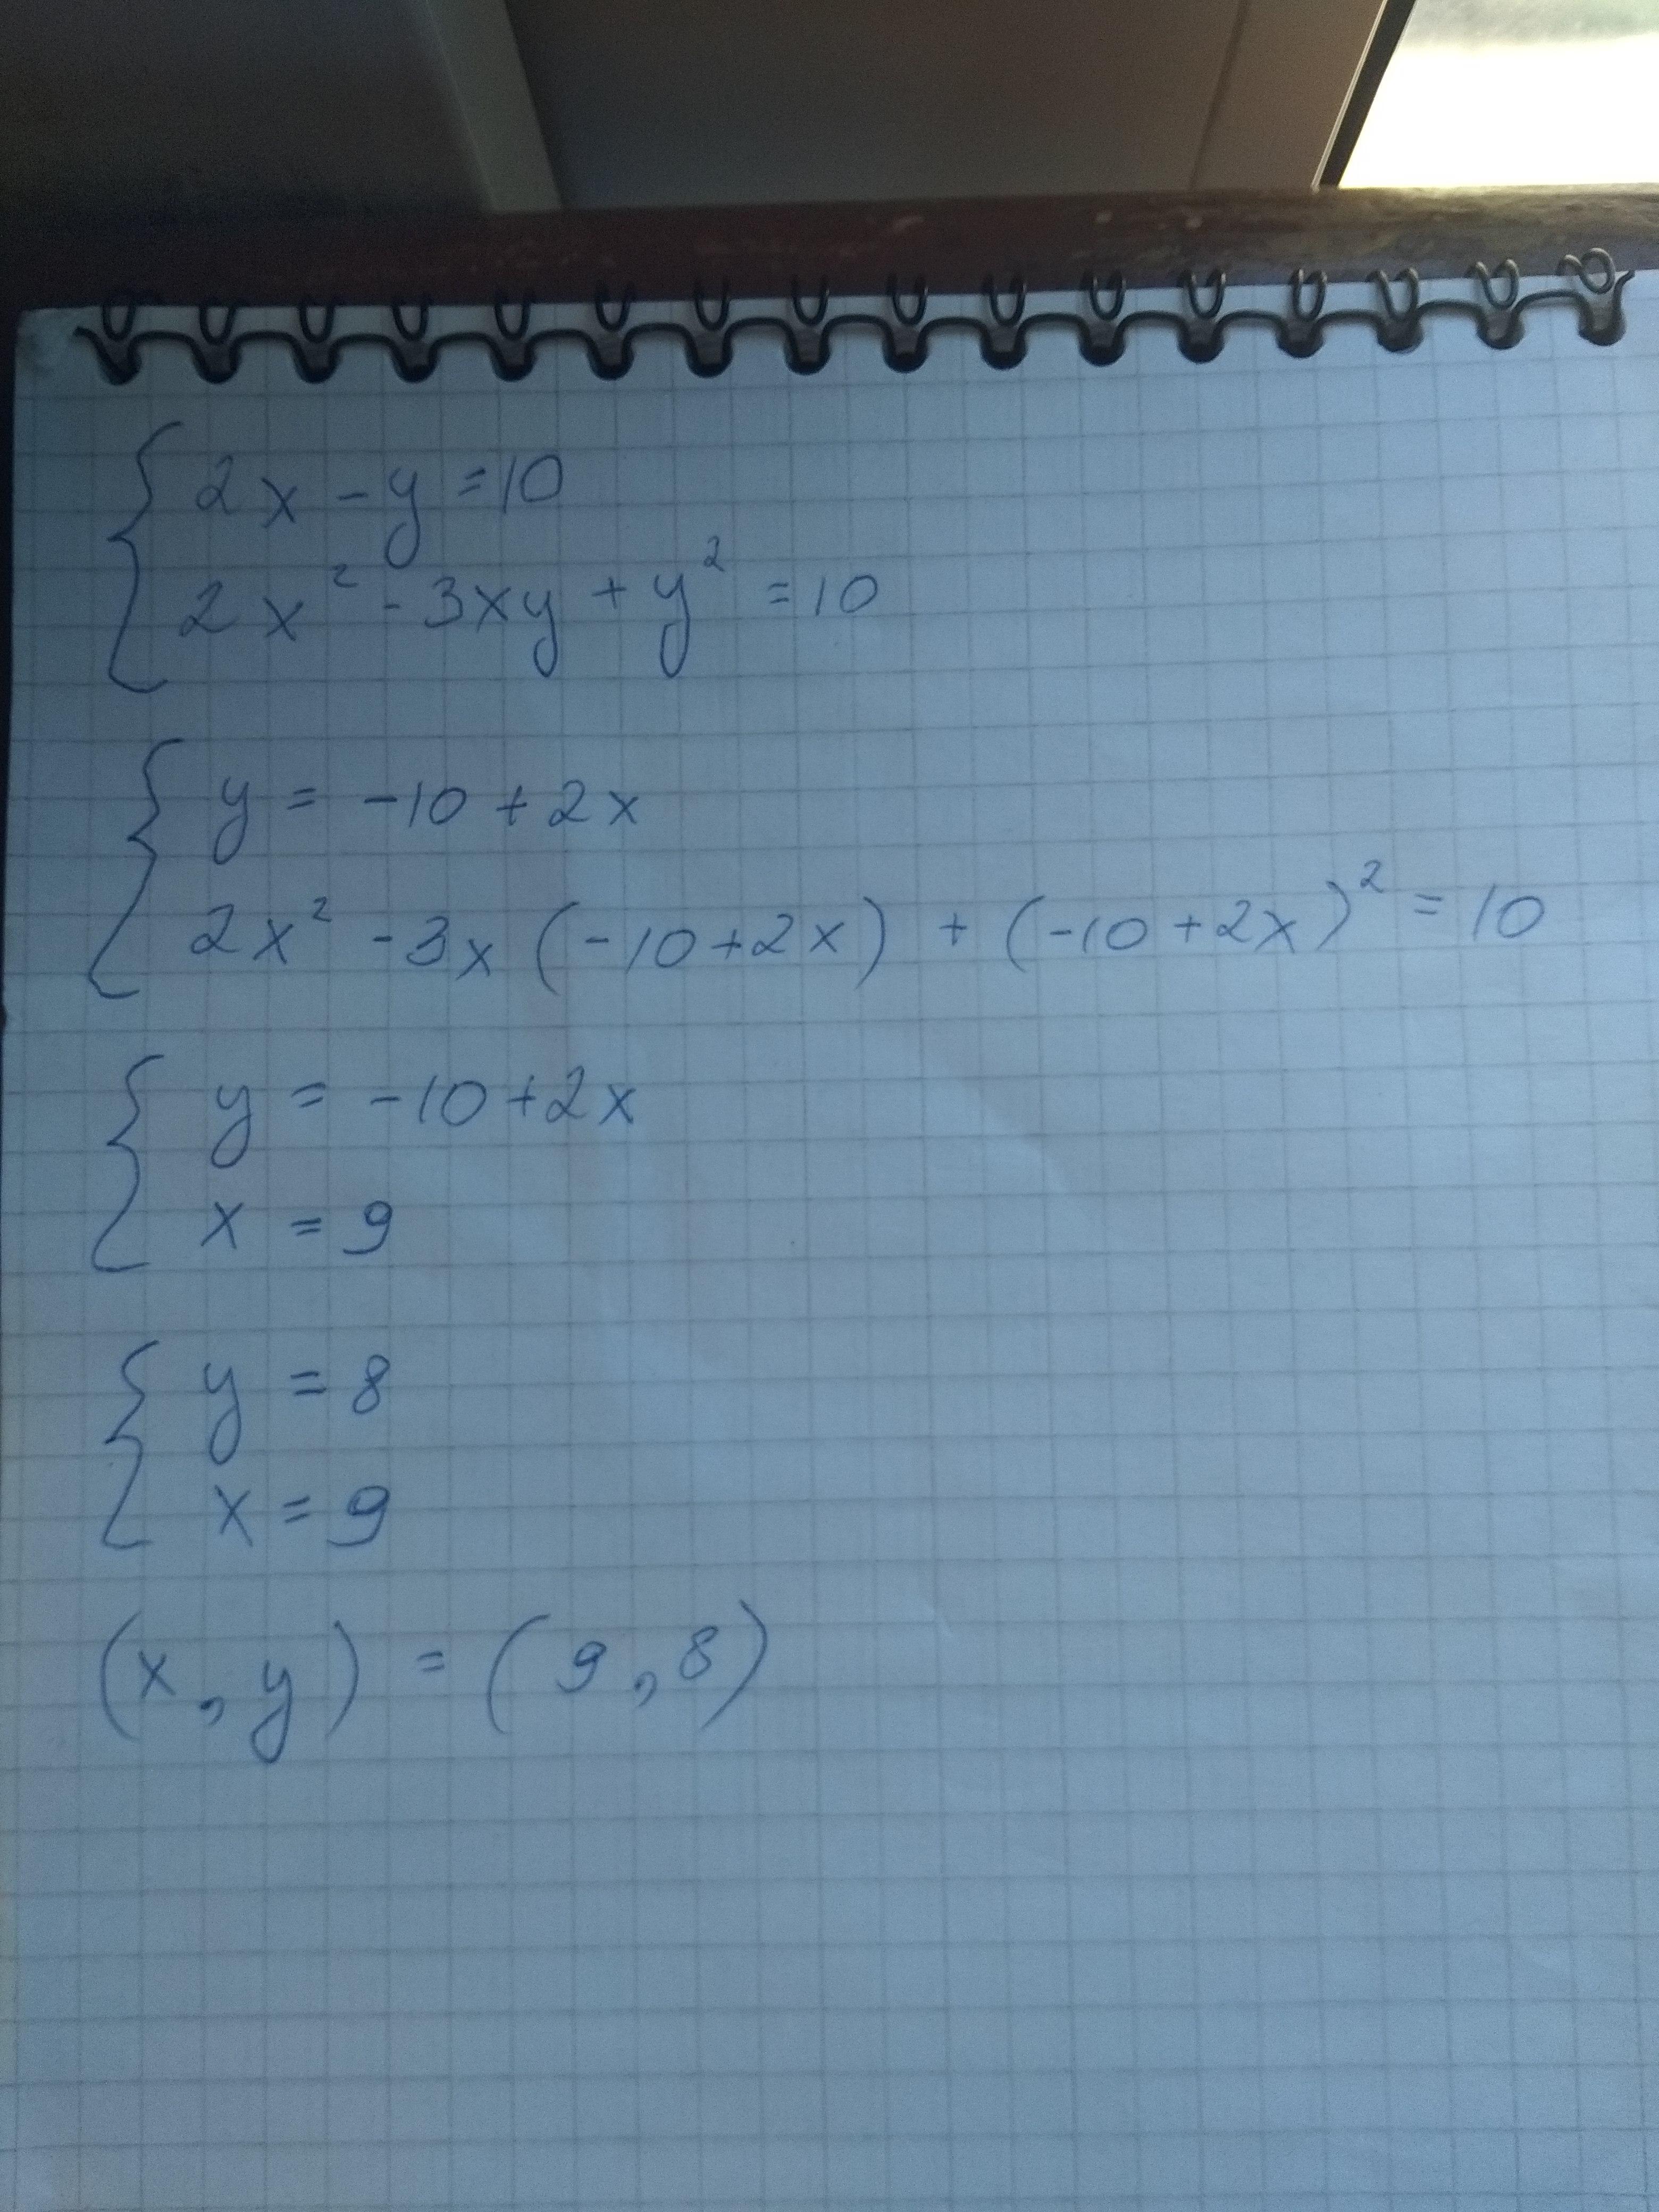 2x - y = 10
2x² - 3xy + y² = 10
y = -10 + 2x
2x² - 3x (-10 + 2x) + (-10 + 2x)² = 10
y = -10 + 2x
x = 9
y = 8
x = 9
(x, y) = (9, 8)